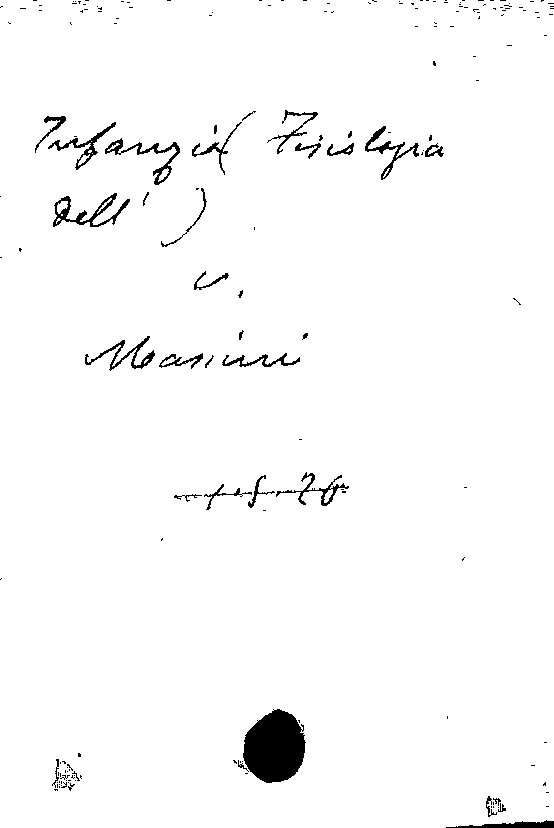 Infanzia (Fisiologia
dell')
v.
Masini